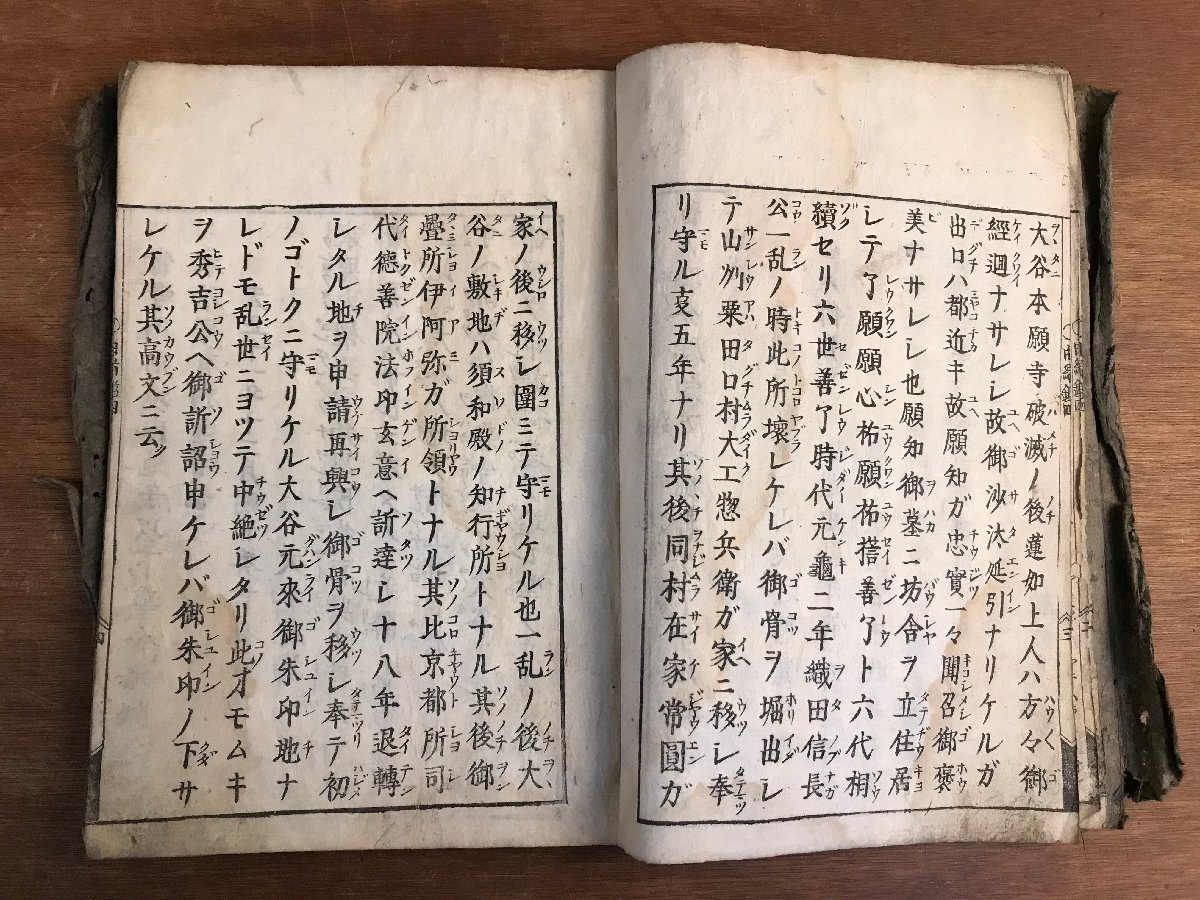 大谷本願寺破滅ノ後蓮如上人ハ方々御
經迴ナサレシ故御沙汰延引ナリケルガ
出口ハ都近キ故願知ガ忠實一々聞召御褒
美ナサレシ也願知御墓ニ坊舎ヲ立住居
シテ了願願心祐願祐誓善了ト六代相
續セリ六世善了時代元龜二年織田信長
公一乱ノ時此所壊レケレバ御骨ヲ堀出シ
テ山州粟田口村大工惣兵衛ガ家ニ移シ奉
リ守ル支五年ナリ其後同村在家常圓ガ
家ノ後ニ移シ圍ミテ守リケル也一乱ノ後大
谷ノ敷地ハ須和殿ノ知行所トナル其後御
疊所伊阿弥ガ所領トナル其比京都所司
代德善院法印玄意ヘ訴達シ十八年退轉
シタル地ヲ申請再興シ御骨ヲ移シ奉テ初
ノゴトクニ守リケル大谷元來御朱印地ナ
レドモ乱世ニヨツテ中絶シタリ此オモムキ
ヲ秀吉公ヘ御訴詔申ケレバ御朱印ノ下サ
レケル其高文ニ云ク